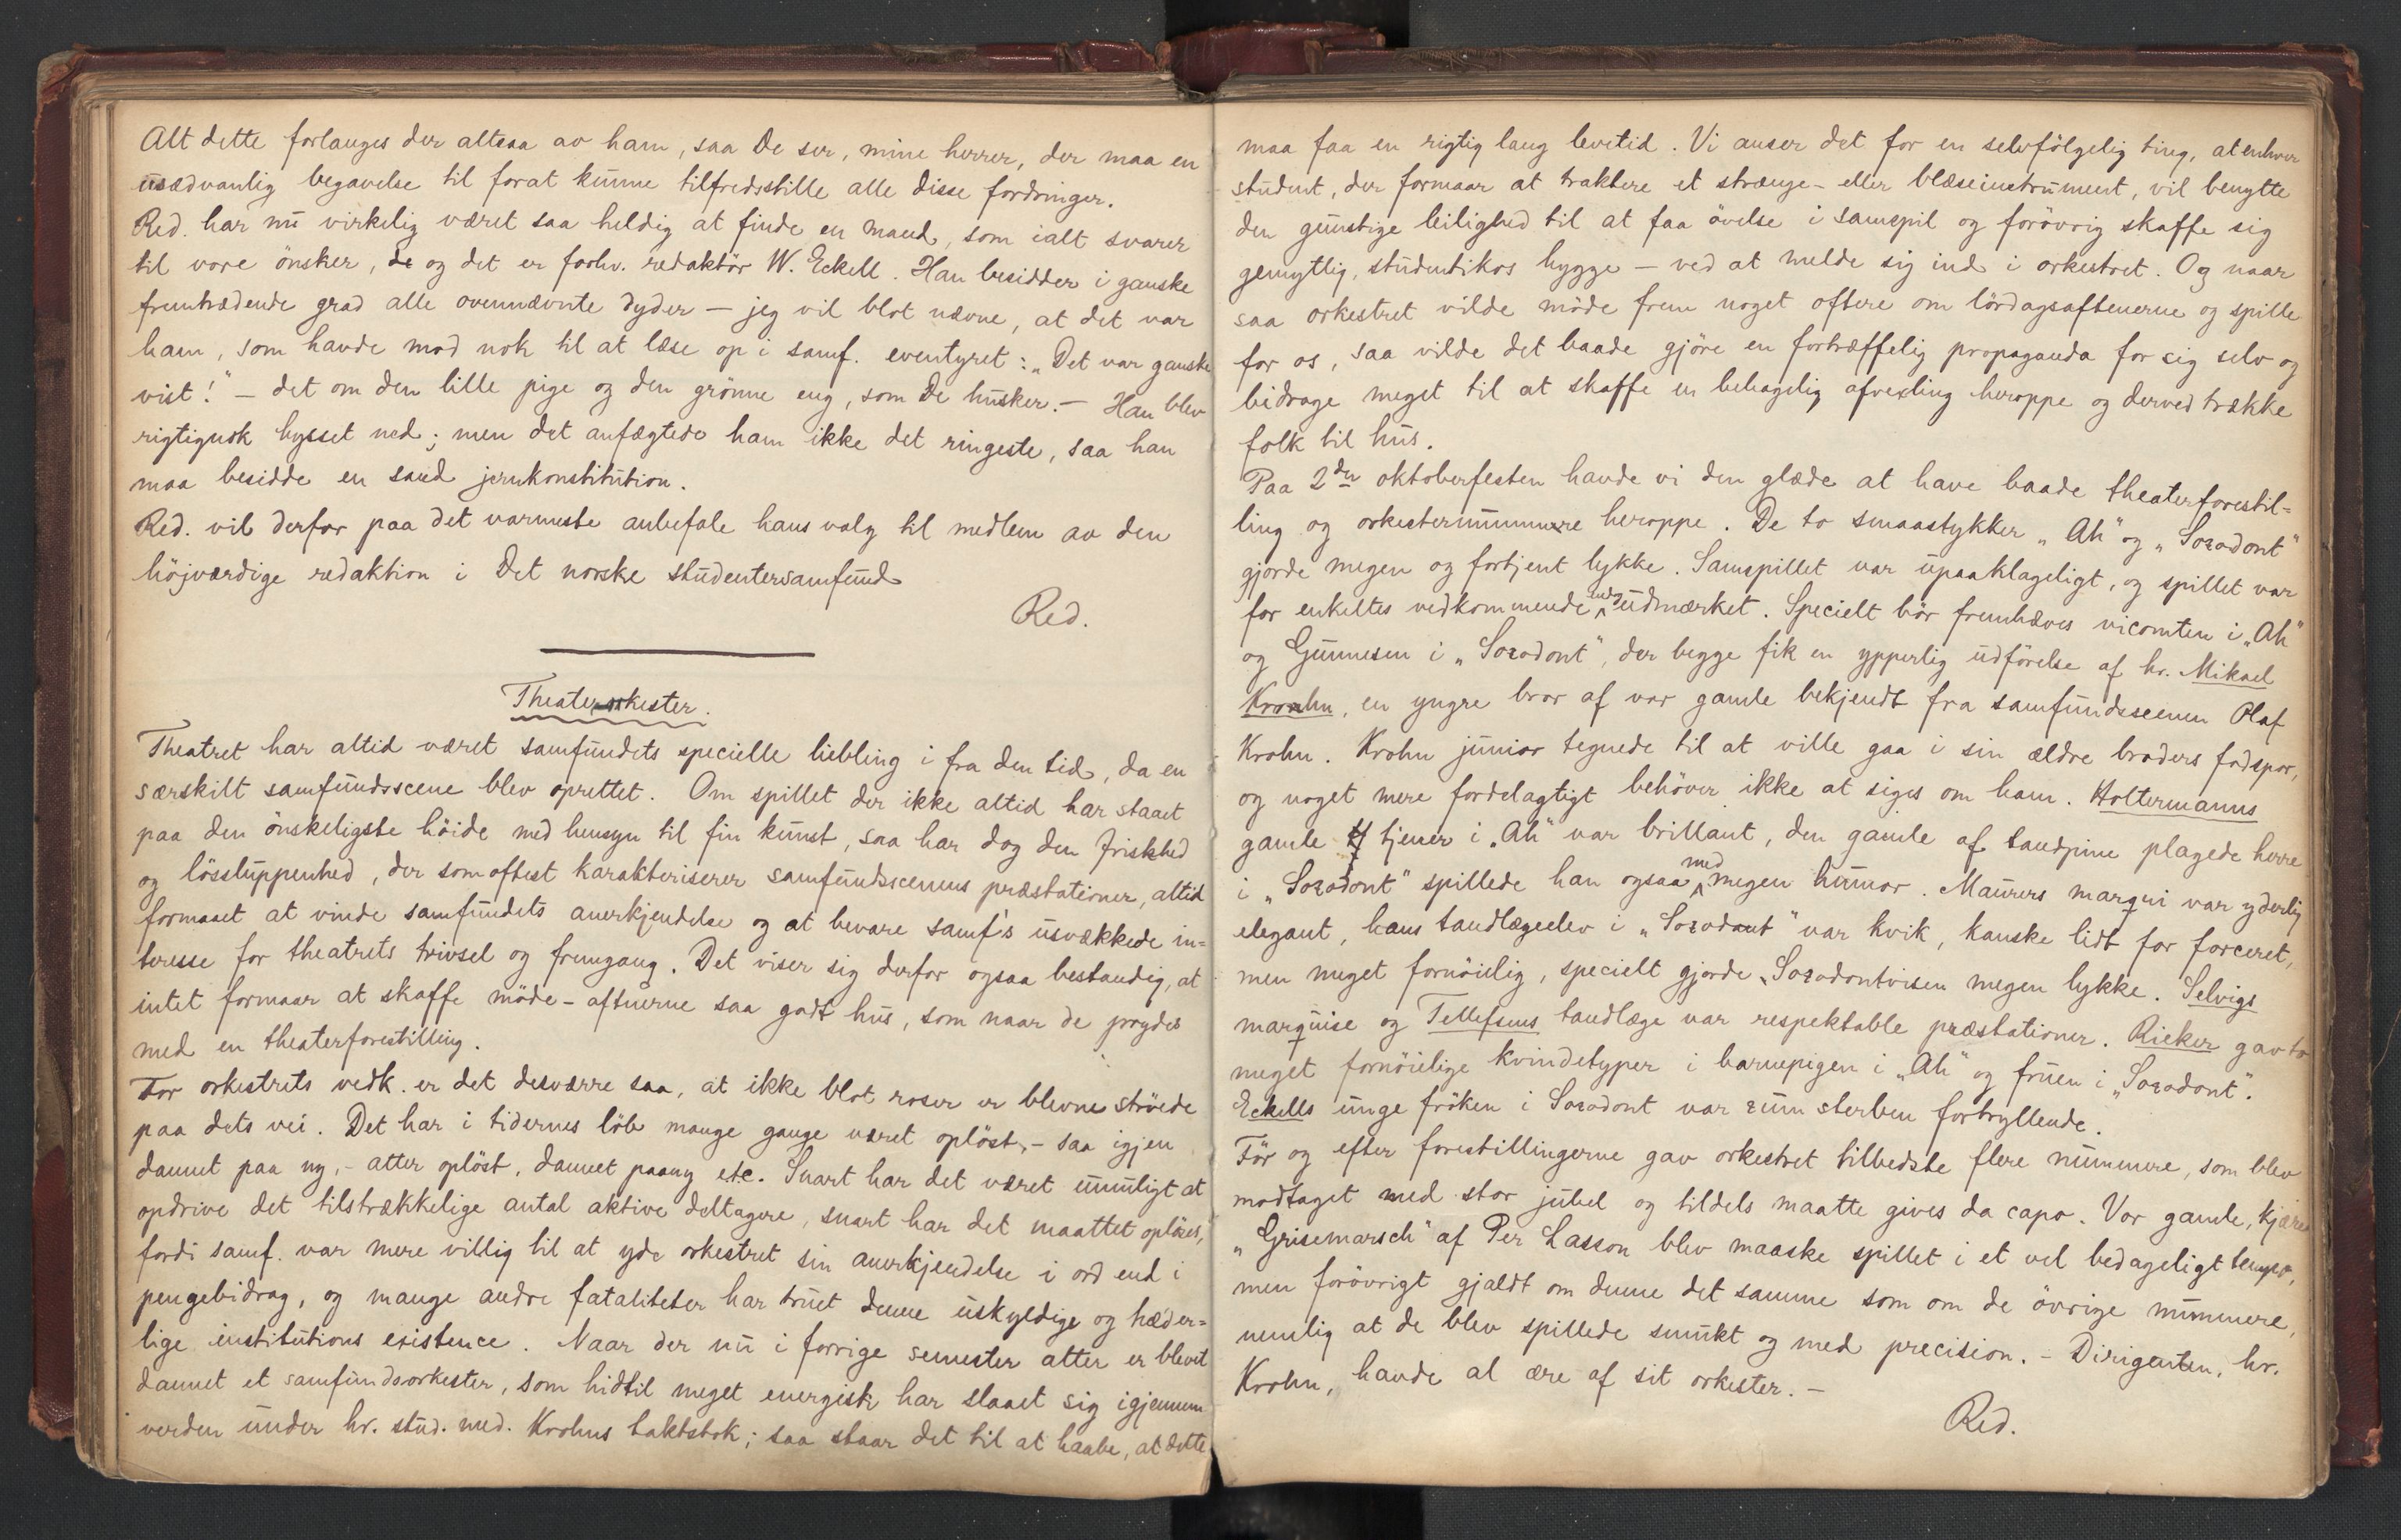 Alt dette forlanges der altsaa av ham, saa De ser, mine herrer, der maa en
usædvanlig begavelse til forat kunne tilfredsstille alle disse fordringer.
Red. har nu virkelig været saa heldig at finde en mand, som ialt svarer
til vore önsker, de og det er forhv. redaktör W. Eckell. Han besidder i ganske
fremtrædende grad alle ovennævnte dyder — jeg vil blot nævne, at det var
ham, som havde mod nok til at læse op i samf. eventyret: „Det var ganske
vist!" — det om den lille pige og den grönne eng, som De husker. — Han blev
rigtignok hysset ned; men det anfægtede ham ikke det ringeste, saa han
maa besidde en sand jernkonstitution.
Red. vil derfor paa det varmeste anbefale hans valg til medlem av den
höjværdige redaktion i Det norske studentersamfund
Red.
Theater, orkester.
Theatret har altid været samfundets specielle liebling i fra den tid, da en
særskilt samfundsscene blev oprettet. Om spillet der ikke altid har staaet
paa den önskeligste höide med hensyn til fin kunst, saa har dog den friskhed
og lössluppenhed, der som oftest karakteriserer samfundsscenens præstationer, altid
formaaet at vinde samfundets anerkjendelse og at bevare samf's usvækkede in=
teresse for theatrets trivsel og fremgang. Det viser sig derfor ogsaa bestandig, at
intet formaar at skaffe möde-aftnerne saa godt hus, som naar de prydes
med en theaterforestilling.
For orkestrets vedk. er det desværre saa, at ikke blot roser er blevne ströede
paa dets vei. Det har i tidernes löb mange gange været oplöst, — saa igjen
dannet paa ny, — atter oplöst, dannet paany etc. Snart har det været umuligt at
opdrive det tilstrækkelige antal aktive deltagere, snart har det maattet oplöses,
fordi samf. var mere villig til at yde orkestret sin anerkjendelse i ord end i
pengebidrag, og mange andre fataliteter har truet denne uskyldige og hæder=
lige institutions existence. Naar der nu i forrige semester atter er blevet
dannet et samfundsorkester, som hidtil meget energisk har slaaet sig igjennem
verden under hr. stud. med. Krohns taktstok; saa staar det til at haabe, at dette
maa faa en rigtig lang levetid. Vi anser det for en selvfölgelig ting, at enhver
student, der formaar at traktere et strænge- eller blæseinstrument, vil benytte
den gunstige leilighed til at faa övelse i samspil og forövrig skaffe sig
gemytlig, studentikos hygge — ved at melde sig ind i orkestret. Og naar
saa orkestret vilde möde frem noget oftere om lördagsaftenerne og spille
for os, saa vilde det baade gjöre en fortræffelig propaganda for sig selv og
bidrage meget til at skaffe en behagelig afvexling heroppe og derved trække
folk til hus.
Paa 2den oktoberfesten havde vi den glæde at have baade theaterforestil=
ling og orkesternummere heroppe. De to smaastykker „Ah" og „Sozodont"
gjorde megen og fortjent lykke. Samspillet var upaaklageligt, og spillet var
for enkeltes vedkommende udmærket. Specielt bör fremhæves vicomten i „Ah"
og Gunnesen i „Sozodont", der begge fik en ypperlig udförelse af hr. Mikael
Krohn, en yngre bror af vor gamle bekjendt fra samfundsscenen Olaf
Krohn. Krohn junior tegnede til at ville gaa i sin ældre broders fodspor,
og noget mere fordelagtigt behöver ikke at siges om ham. Holtermanns
gamle tjener i „Ah" var brillant, den gamle af tandpine plagede herre
i „Sozodont" spillede han ogsaa med megen humor. Maurers marqui var yderlig
elegant, hans tandlægeelev i „Sozodont" var kvik, kanske lidt for forceret,
men meget fornöielig, specielt gjorde Sozodontvisen megen lykke. Selvigs
marquise og Tellefsens tandlæge var respektable præstationer. Rieker gav to
meget fornöielige kvindetyper i barnepigen i „Ah" og fruen i „Sozodont".
Eckells unge fröken i Sozodont var zum sterben fortryllende.
För og efter forestillingerne gav orkestret tilbedste flere nummere, som blev
modtaget med stor jubel og tildels maatte gives da capo. Vor gamle, kjære
„Grisemarsch" af Per Lasson blev maaske spillet i et vel bedageligt tempo,
men forövrigt gjaldt om denne det samme som om de övrige nummere,
nemlig at de blev spillede smukt og med precision. — Dirigenten, hr.
Krohn, havde al ære af sit orkester. —
Red.